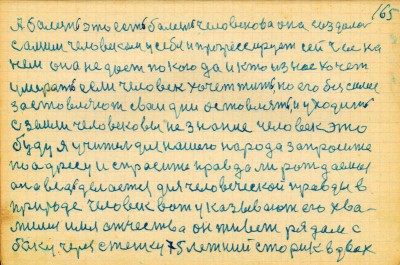 165
А болезнь это есть болезнь человекова она создалось
самим человеком и себе и прогрессирует сей час на
нем она не дает покою да и кто из нас хочет
умирать если человек хочет жить, но его без силие
заставляют свои дни оставлять, и уходить
с земли человековы не знание человек это
буду я учитель для нашего народа запросите
по адресу и спросите правда ли рождаемая
она в делается для человеческой правды в
природе человек вот указывают его хва-
милию имя отчества он живет рядам с
боку через стенку 75 летний старик в двох